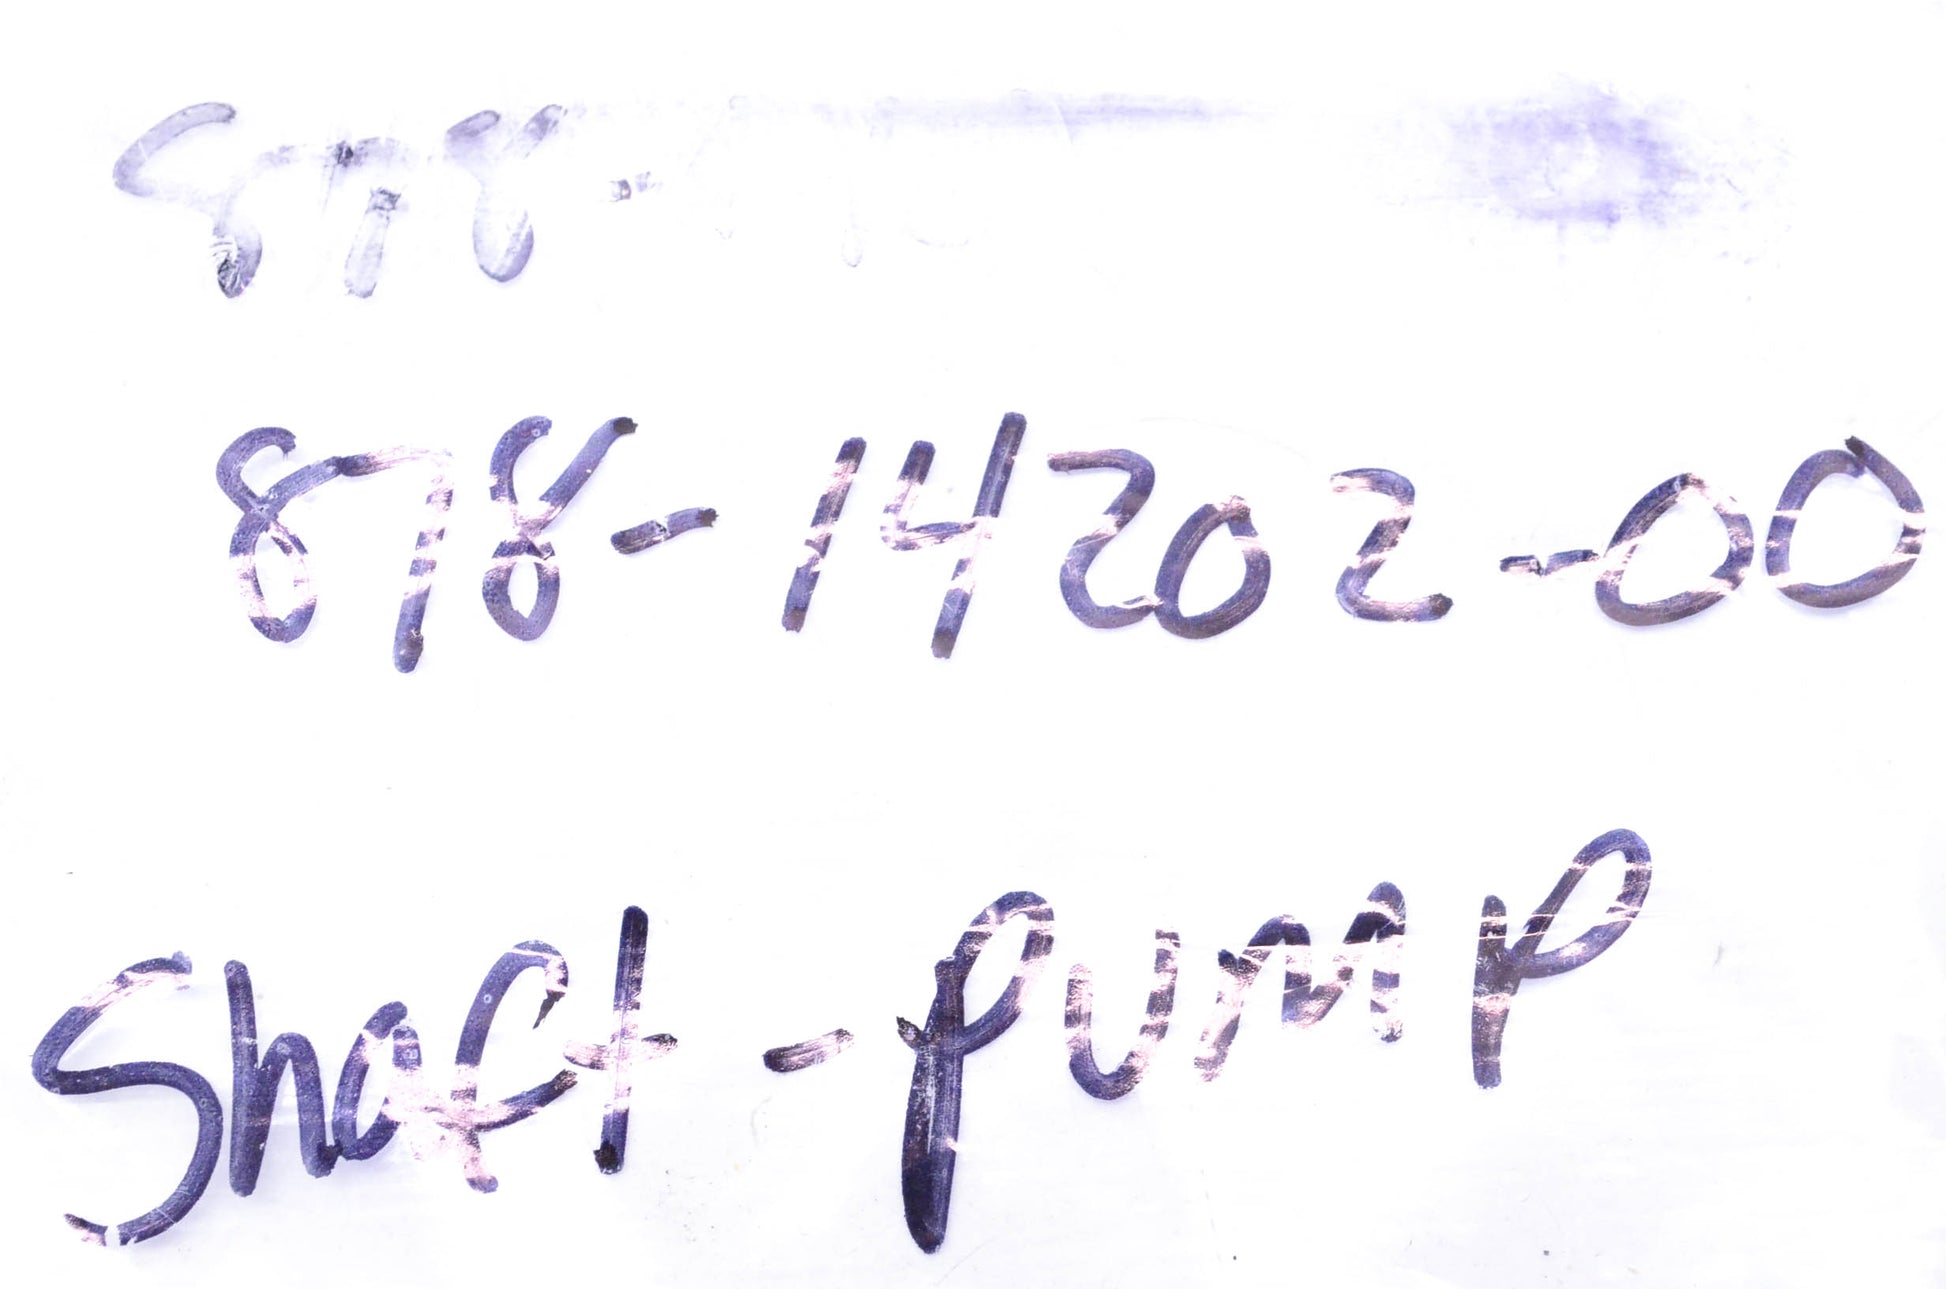 878-
878-14202-00
Shaft - pump